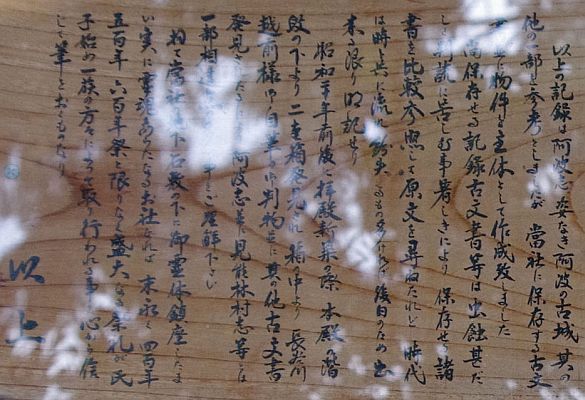 以上の記録は阿波志 姿なき阿波の古城 其の
他の一部を参考としましたが 当社に保存する古文
書並に物件を主体として作成致しました
尚保存せる記録古文書等は虫蝕甚だ
しく判読に苦しむ事著しきにより 保存せる諸
書を比較参照して原文を尋ねたれど 時代
は時と共に流れ 散失するもの多ければ後日のため出
来る限り明記せり
昭和十年前後に拝殿新築の際 本殿の階
段の下より二重箱発見され 箱の中より 長谷川
越前様御自筆の御判物並に其の他古文書
発見されたるにより阿波志並に見能林村志等とは
一部相違 事をご理解下さい
当社は下石敷の下に御霊体鎮座したま
い実に霊現あらたかなるお社なれば 末永く四百年
五百年 六百年祭と限りなく盛大なる祭礼が氏
子始め一族の方々によって取り行われる事を心から信
じて筆をおくものなり
以上